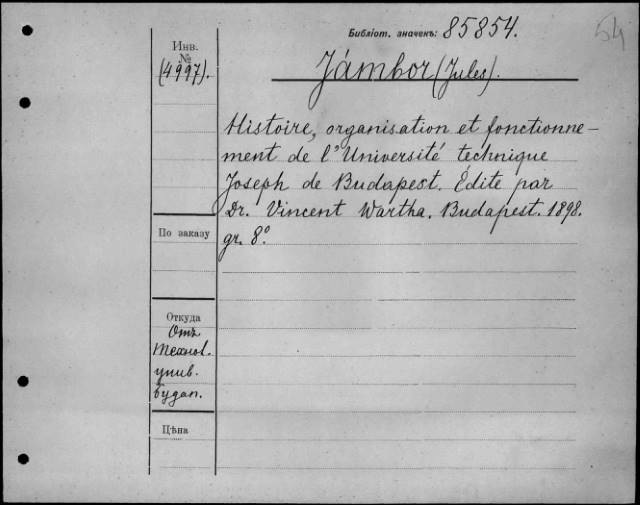 Библіот. значекъ: 85854.
54
Инв.
№
(4997).
Jámbor (Jules).
Histoire, organisation et fonctionne-
ment de l'Université technique
Joseph de Budapest. Édité par
Dr. Vincent Wartha. Budapest. 1898.
gr. 8°.
По заказу
Откуда
Отъ
Технол.
унив.
Будап.
Цѣна